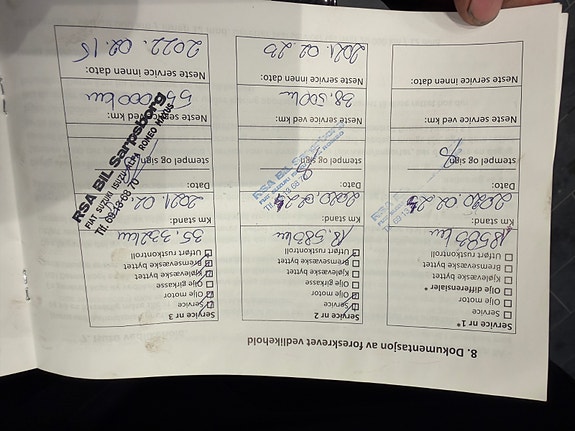 8. Dokumentasjon av foreskrevet vedlikehold
Service nr 1*
Service
Olje motor
Olje differensialer *
Kjølevæske byttet
Bremsevæske byttet
Utført rustkontroll
18583 km
Km stand:
2020.02.25
Dato:
stempel og sign
Neste service ved km:
Neste service innen dato:
Service nr 2
Service
Olje motor
Olje girkasse
Kjølevæske byttet
Bremsevæske byttet
Utført rustkontroll
18.583 km
Km stand:
2020.02.25
Dato:
RSA BIL
stempel og sign
Neste service ved km:
38.500 km
Neste service innen dato:
2021.02.20
Service nr 3
Service
Olje motor
Olje girkasse
Kjølevæske byttet
Bremsevæske byttet
Utført rustkontroll
35.352 km
Km stand:
2021.02,
Dato:
stempel og sign
RSA BIL Sarpsborg
FIAT SUZUKI ISUZU ALFA ROMEO MAXUS
Tlf. 69 13 68 70
Neste service ved km:
55.000 km
Neste service innen dato:
2022.02.15